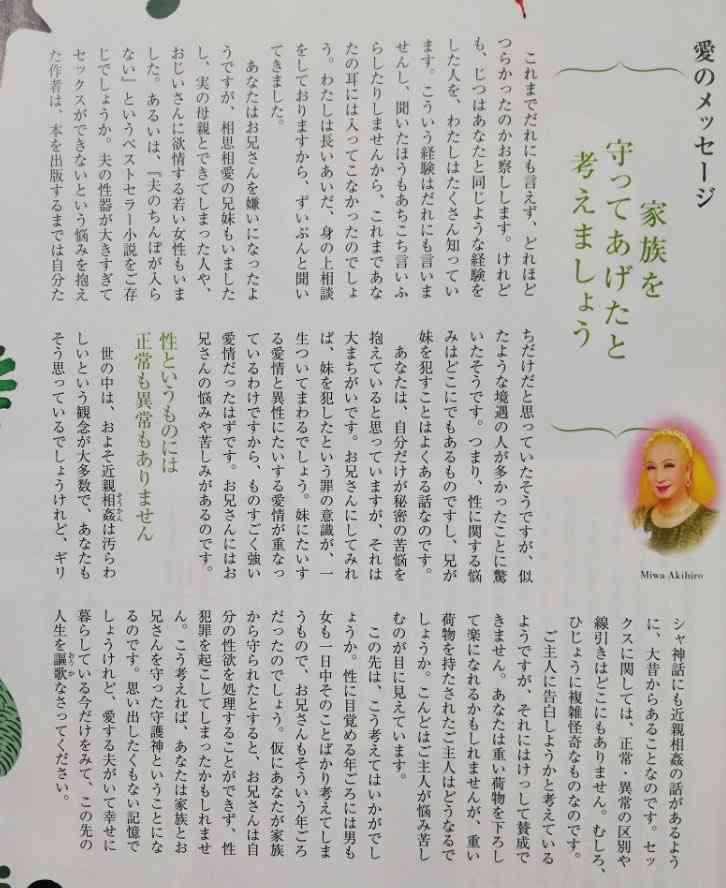 愛のメッセージ
家族を
守ってあげたと
考えましょう
Miwa Akihiro
これまでだれにも言えず、どれほど
つらかったのかお察しします。けれど
も、じつはあなたと同じような経験を
した人を、わたしはたくさん知ってい
ます。こういう経験はだれにも言いま
せんし、聞いたほうもあちこち言いふ
らしたりしませんから、これまであな
たの耳には入ってこなかったのでしょ
う。わたしは長いあいだ、身の上相談
をしておりますから、ずいぶんと聞い
てきました。
あなたはお兄さんを嫌いになったよ
うですが、相思相愛の兄妹もいました
し、実の母親とできてしまった人や、
おじいさんに欲情する若い女性もいま
した。あるいは、『夫のちんぽが入ら
ない』というベストセラー小説をご存
じでしょうか。夫の性器が大きすぎて
セックスができないという悩みを抱え
た作者は、本を出版するまでは自分た
ちだけだと思っていたそうですが、似
たような境遇の人が多かったことに驚
いたそうです。つまり、性に関する悩
みはどこにでもあるものですし、兄が
妹を犯すことはよくある話なのです。
あなたは、自分だけが秘密の苦悩を
抱えていると思っていますが、それは
大まちがいです。お兄さんにしてみれ
ば、妹を犯したという罪の意識が、一
生ついてまわるでしょう。妹にたいす
る愛情と異性にたいする愛情が重なっ
ているわけですから、ものすごく強い
愛情だったはずです。お兄さんにはお
兄さんの悩みや苦しみがあるのです。
性というものには
正常も異常もありません
世の中は、およそ近親相姦は汚らわ
しいという観念が大多数で、あなたも
そう思っているでしょうけれど、ギリ
シャ神話にも近親相姦の話があるよう
に、大昔からあることなのです。セッ
クスに関しては、正常・異常の区別や
線引きはどこにもありません。むしろ、
ひじょうに複雑怪奇なものなのです。
ご主人に告白しようかと考えている
ようですが、それにはけっして賛成で
きません。あなたは重い荷物を下ろし
て楽になれるかもしれませんが、重い
荷物を持たされたご主人はどうなるで
しょうか。こんどはご主人が悩み苦し
むのが目に見えています。
この先は、こう考えてはいかがでし
ょうか。性に目覚める年ごろには男も
女も一日中そのことばかり考えてしま
うもので、お兄さんもそういう年ごろ
だったのでしょう。仮にあなたが家族
から守られたとすると、お兄さんは自
分の性欲を処理することができず、性
犯罪を起こしてしまったかもしれませ
ん。こう考えれば、あなたは家族とお
兄さんを守った守護神ということにな
るのです。思い出したくもない記憶で
しょうけれど、愛する夫がいて幸せに
暮らしている今だけをみて、この先の
人生を謳歌なさってください。